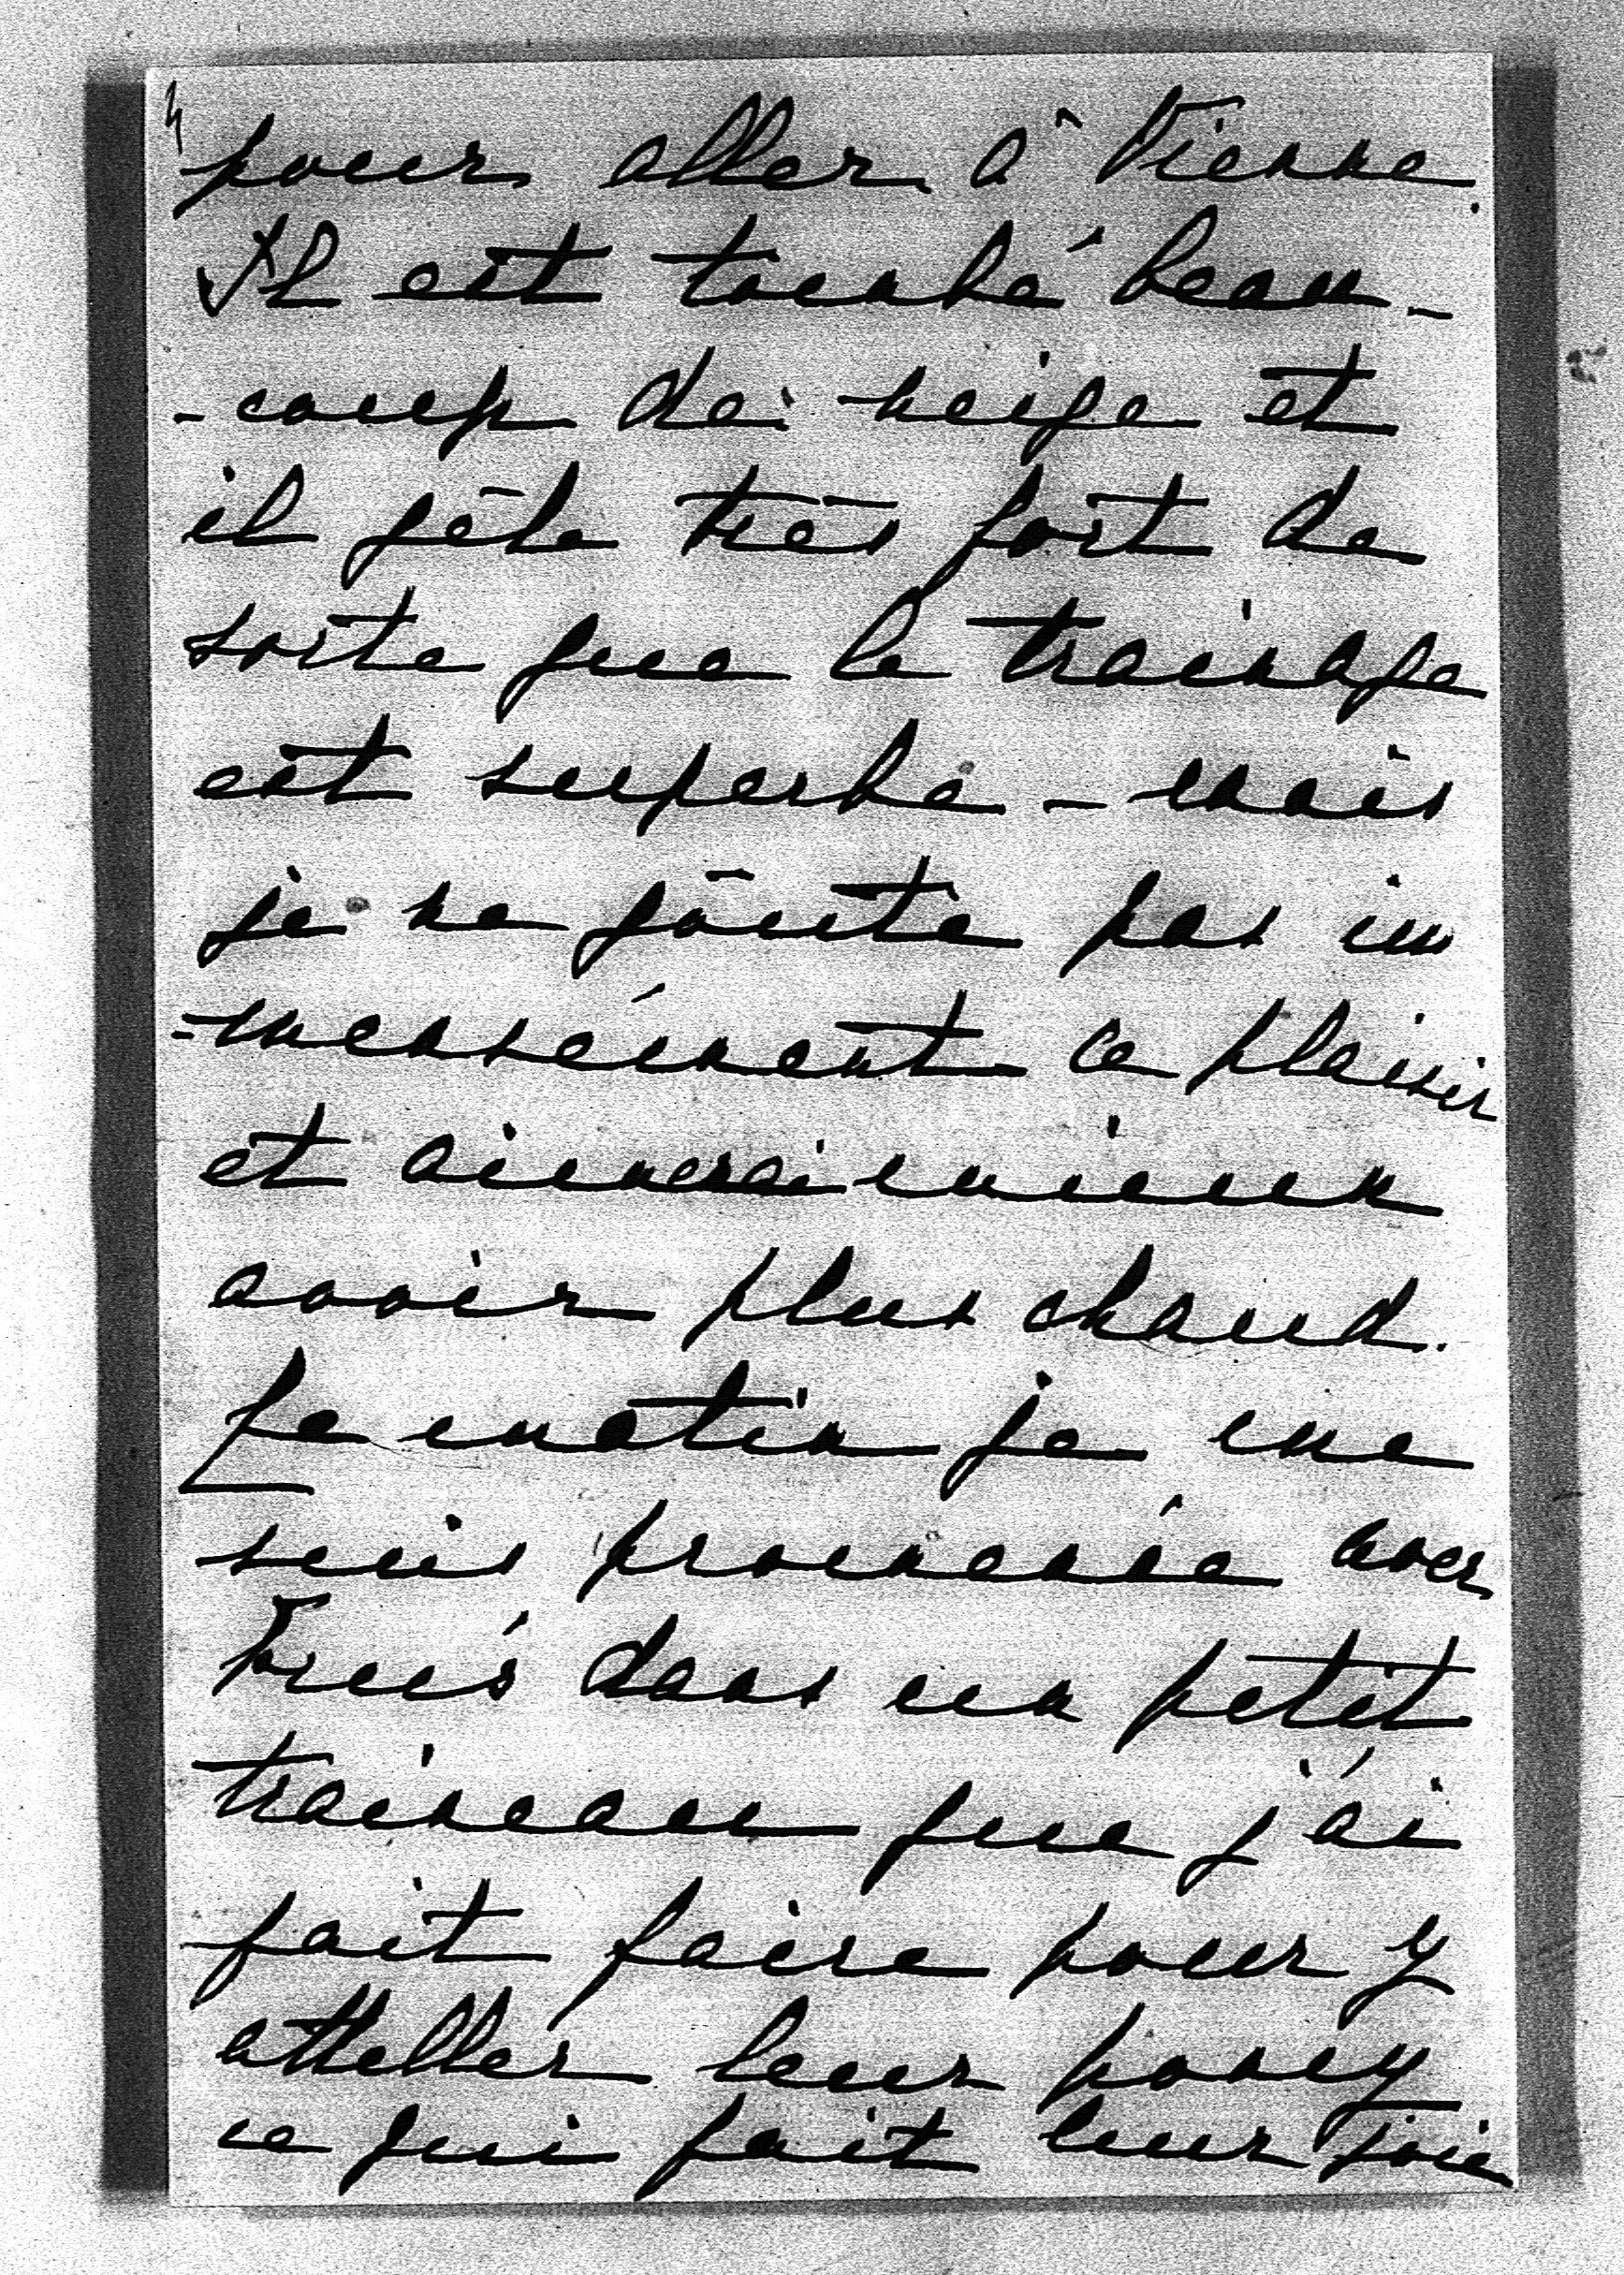 4
pour aller à Vienne.
Il est tombé beau-
-coup de neige et
il gèle très fort de
sorte que le trainage
est superbe - mais
je ne goûte pas im
=mensément ce plaisir
et aimerai mieux
avoir plus chaud.
Ce matin je me
suis promenée avec
dans un petit
traineau que j'ai
fait faire pour y
atteller leur poney
ce qui fait leur joie